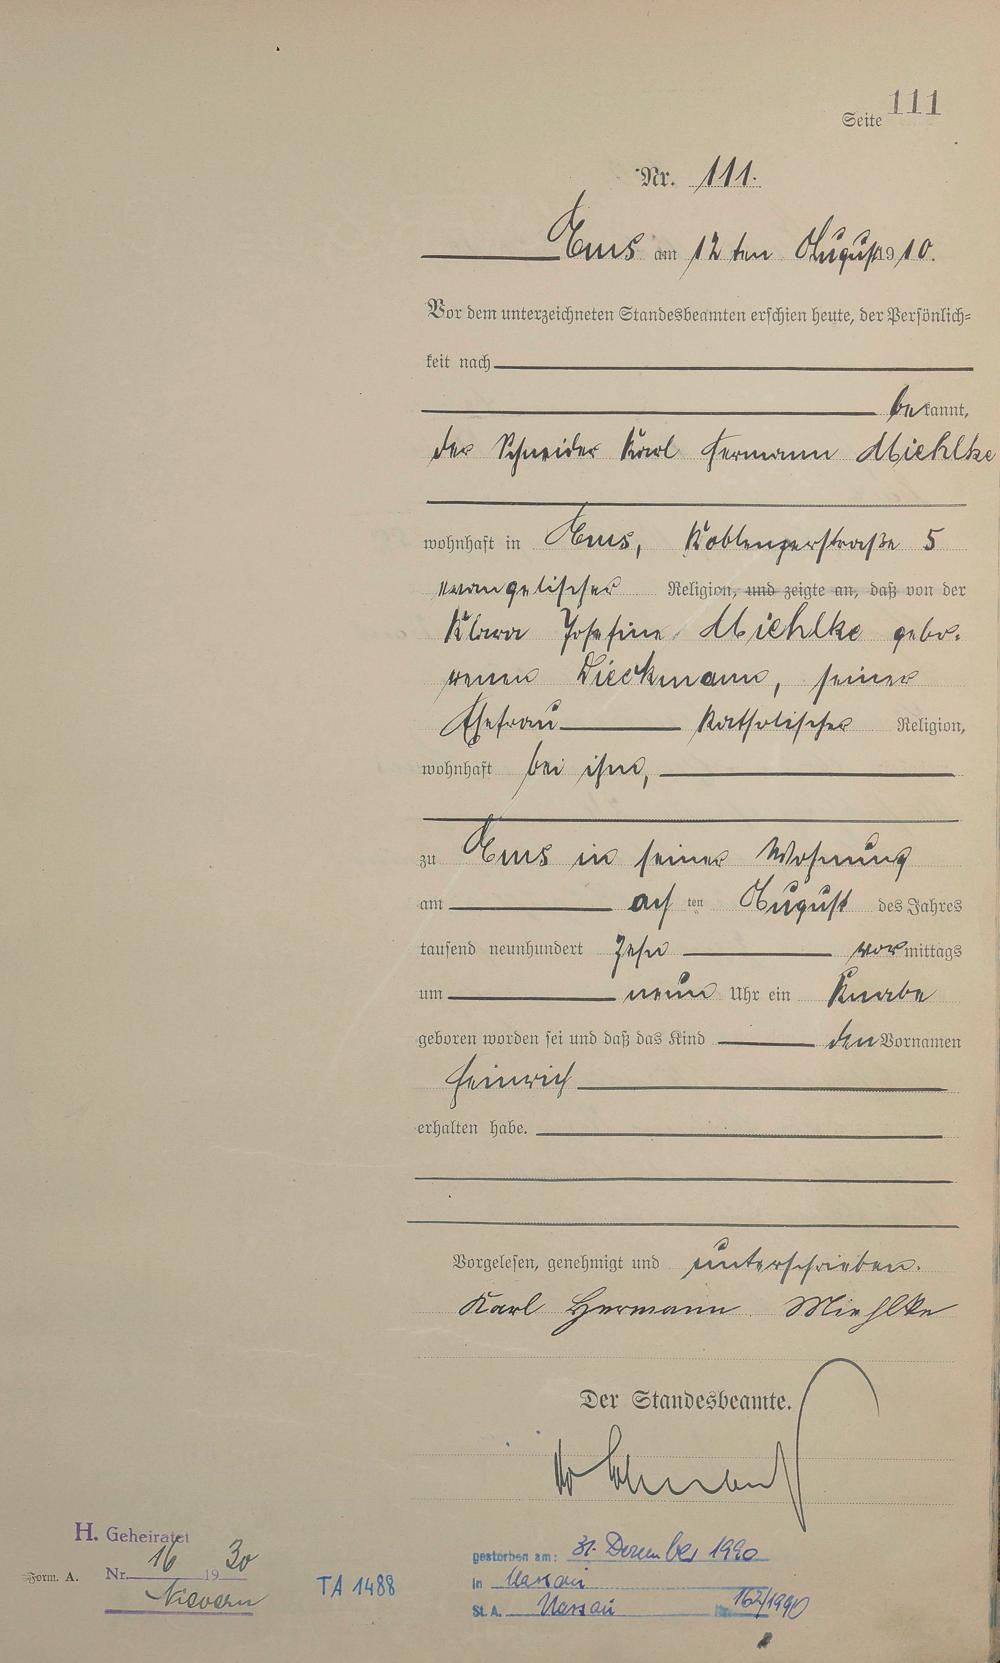 Seite 111
Nr. 111.
Ems am 12 ten August 1910.
Vor dem unterzeichneten Standesbeamten erschien heute, der Persönlich=
keit nach
bekannt,
der Schneider Karl Hermann Miehlke
wohnhaft in Ems, Koblenzerstraße 5
evangelischer Religion, und zeigte an, daß von der
Klara Josefine Miehlke gebo-
renen Dieckmann, seiner
Ehefrau katholischer Religion,
wohnhaft bei ihm,
zu Ems in seiner Wohnung
am acht ten August des Jahres
tausend neunhundert zehn vormittags
um neun Uhr ein Knabe
geboren worden sei und daß das Kind den Vornamen
Heinrich
erhalten habe.
Vorgelesen, genehmigt und unterschrieben.
Karl Hermann Miehlke
Der Standesbeamte.
H. Geheiratet
Nr. 16 1930
Nievern
Form. A.
TA 1488
gestorben am: 31. Dezember 1990
in Nassau
St. A. Nassau Nr. 162/1990